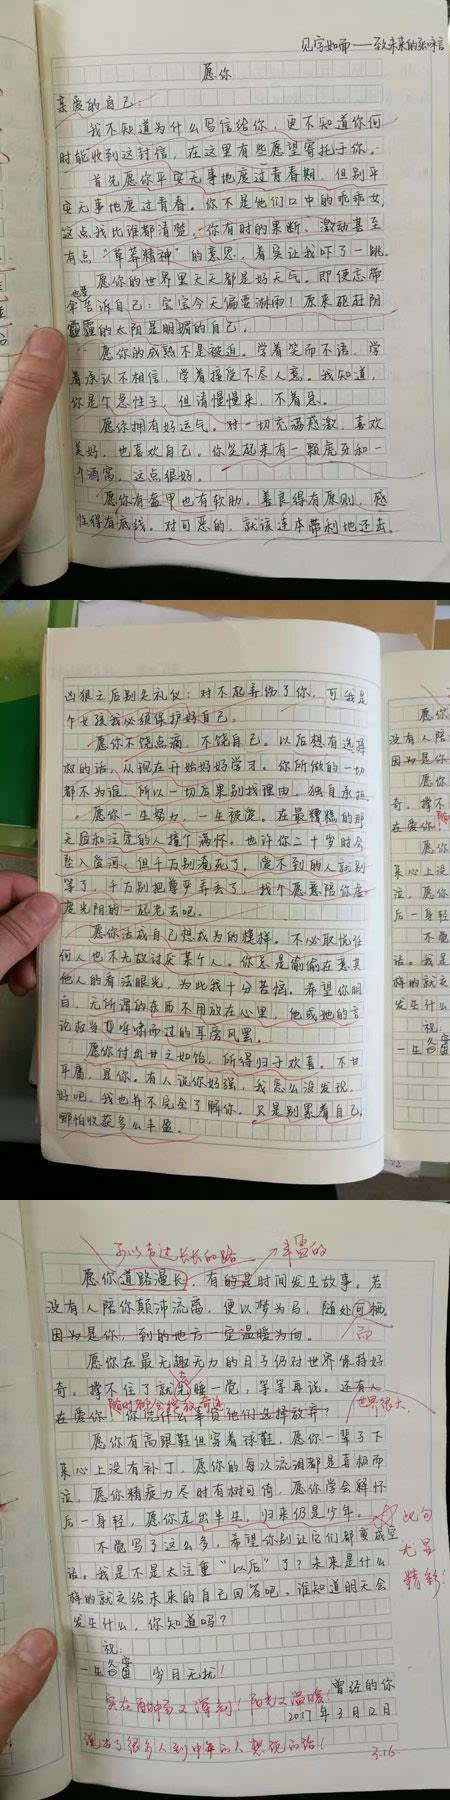 见字如面——致未来的张
愿你
亲爱的自己：
我不知道为什么写信给你，更不知道你何
时能收到这封信，在这里有些愿望寄托于你。
首先愿你平安无事地度过青春期，但别平
安无事地度过青春。你不是他们口中的乖乖女，
这点我比谁都清楚，你有时的果断、激动甚至
有点“草莽精神”的意思，着实让我吓了一跳。
愿你的世界里天天都是好天气。即使忘带
伞也要告诉自己：宝宝今天偏要淋雨！原来砸赶阴
霾的太阳是明媚的自己。
愿你的成熟不是被迫。学着笑而不语，学
着承认不相信，学着接受不尽人意。我知道，
你是个急性子，但请慢慢来，不着急。
愿你拥有好运气。对一切充满感激，喜欢
美好，也喜欢自己。你笑起来有一颗虎牙和一
个酒窝，这点很好。
愿你有盔甲也有软肋。善良得有原则，感
性得有底线。对可恶的，就该连本带利地还击。
凶狠之后别失礼仪：对不起弄伤了你，可我是
个女孩我必须保护好自己。
愿你不饶点滴，不饶自己。以后想有选择
权的话，从现在开始好好学习。你所做的一切
都不为谁，所以一切后果别找理由，独自承担。
愿你一生努力，一生被爱。在最糟糕的那
天后和注定的人撞个满怀。也许你二十岁时会
坠入爱河，但千万别淹死了。爱不到的人就别
等了，千万别把尊严弄丢了，找个愿意陪你虚
度光阴的一起老去吧。
愿你活成自己想成为的模样。不必取悦任
何人也不无故讨厌某个人。你总是偷偷在意其
他人的看法眼光，为此我十分苦恼。希望你明
白，无所谓的东西不用放在心里，他或她的言
论权当夏季啸而过的耳旁风罢。
愿你付出甘之如饴，所得归于欢喜。不甘
平庸，是你。有人说你好强，我怎么没发现。
好吧，我也并不完全了解你。只是别累着自己，
哪怕收获多么丰盈。
可以走过长长的路
丰盈的
愿你道路漫长，有的是时间发生故事。若
没有人陪你颠沛流离，便以梦为马，随处可栖。
因为是你，到的地方一定温暖为向。
而
愿你在最无趣无力的日子仍对世界保持好
奇。撑不住了就先去睡一觉，等等再说。还有人
随时都会绽放奇迹
世界很大
在爱你！你凭什么辜负他们选择放弃？
愿你有高跟鞋但穿着球鞋，愿你一辈子下
来心上没有补丁，愿你的每次流泪都是喜极而
泣，愿你精疲力尽时有树可倚，愿你学会释怀
后一身轻，愿你走出半生，归来仍是少年。
此句
尤显
精彩！
不觉写了这么多，希望你别让它们都变成空
话。我是不是太注重“以后”了？未来是什么
样的就交给未来的自己回答吧。谁知道明天会
发生什么，你知道吗？
祝：
一生备蜜 岁月无扰！
曾经的你
实在甜蜜又深刻！阳光又温暖！
2017年3月12日
说出了很多人到中年的人想说的话！
3.16